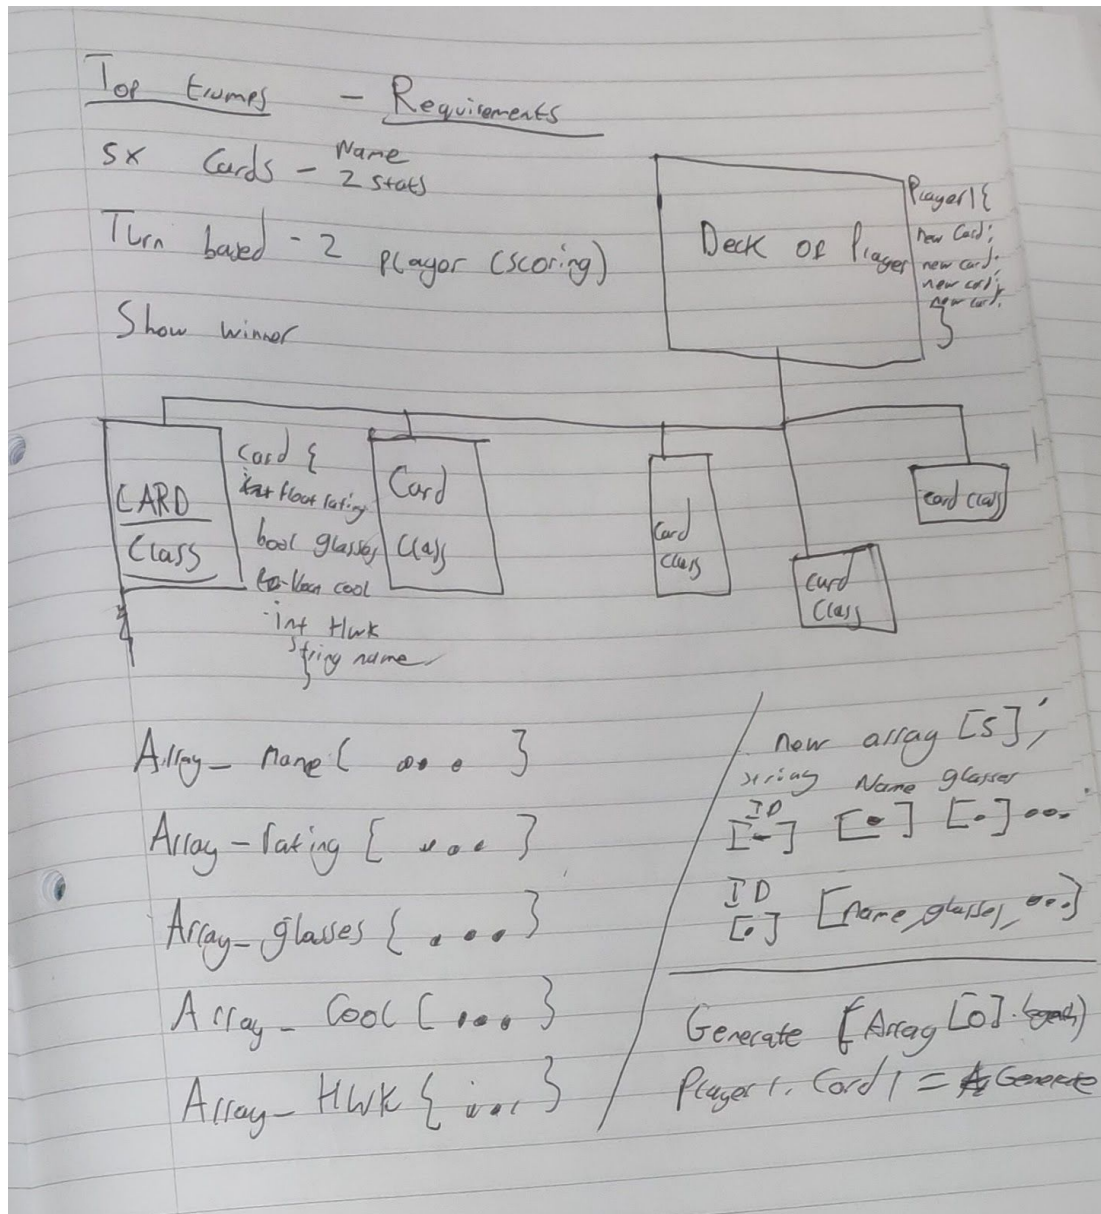 Top trumps - Requirements
5x Cards - Name
2 stats
Turn based - 2 player (scoring)
Show winner
Deck of Player
Player1{
new Card;
new card;
new card;
new card;
}
CARD
Class
Card {
float rating
bool glasses
cool
int Hwk
string name
}
Card
Class
Card
Class
Card
Class
Card Class
Array_name{ ... }
Array-rating [ ... }
Array_glasses { ... }
Array_Cool [ ... }
Array_HWK { ... }
new array [5];
string Name glasses
ID
[.] [.] [.] ...
ID
[.] [name, glasses, ...]
Generate [Array [0].
Player1.Card1 = Generate